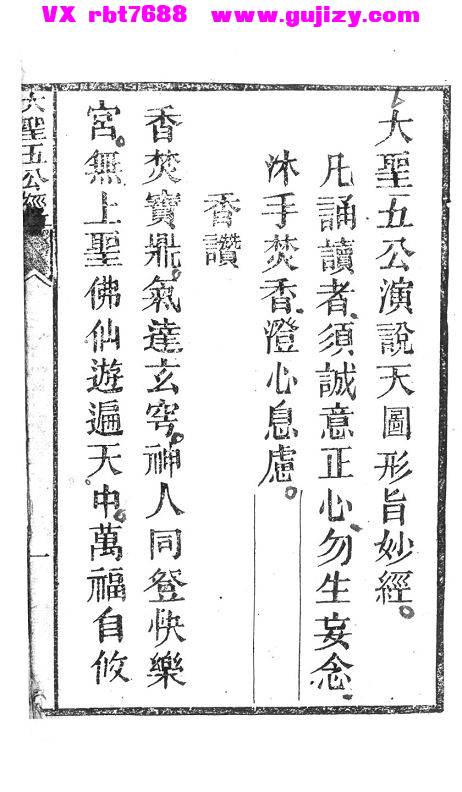 VX rbt7688 www.gujizy.com
大聖五公演說天圖形旨妙經。
凡誦讀者、須誠意正心、勿生妄念、
沐手焚香、澄心息慮。
香讚
香焚寶鼎。氣達玄穹。神人同登快樂
宮。無上聖佛仙遊遍天中。萬福自攸
大聖五公經
一